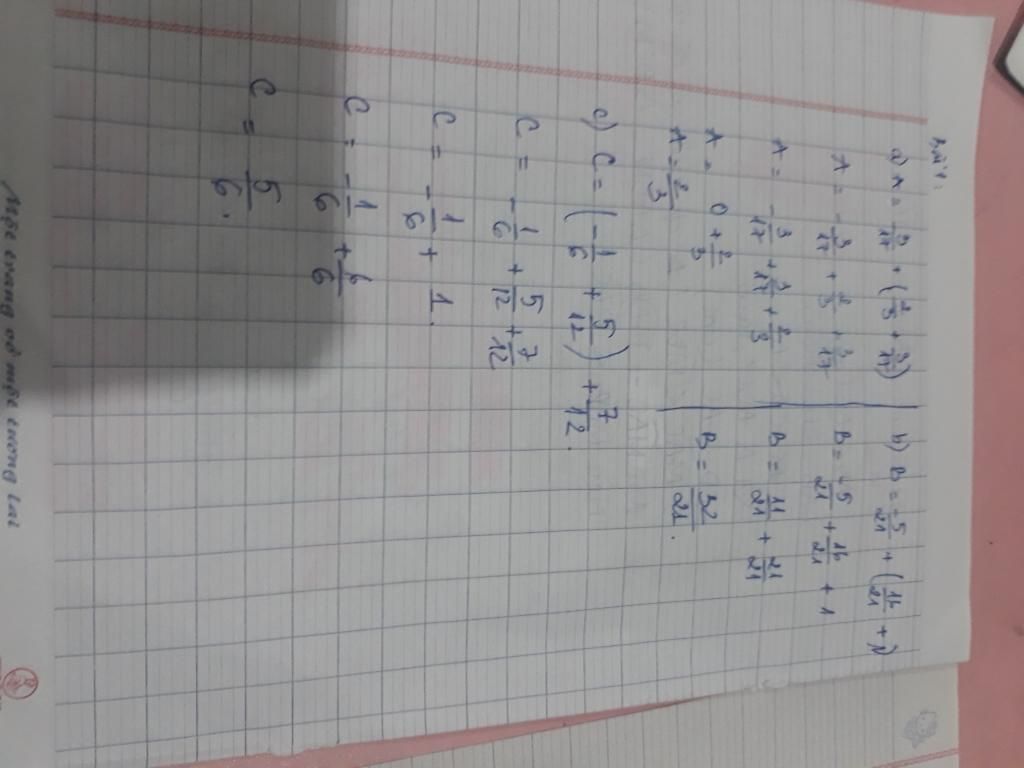 Bài 1:
a) A = -3/17 + (2/3 + 3/17)
A = -3/17 + 2/3 + 3/17
A = -3/17 + 3/17 + 2/3
A = 0 + 2/3
A = 2/3
b) B = -5/21 + (16/21 + 1)
B = -5/21 + 16/21 + 1
B = 11/21 + 21/21
B = 32/21.
c) C = (-1/6 + 5/12) + 7/12.
C = -1/6 + 5/12 + 7/12
C = -1/6 + 1.
C = -1/6 + 6/6
C = 5/6.